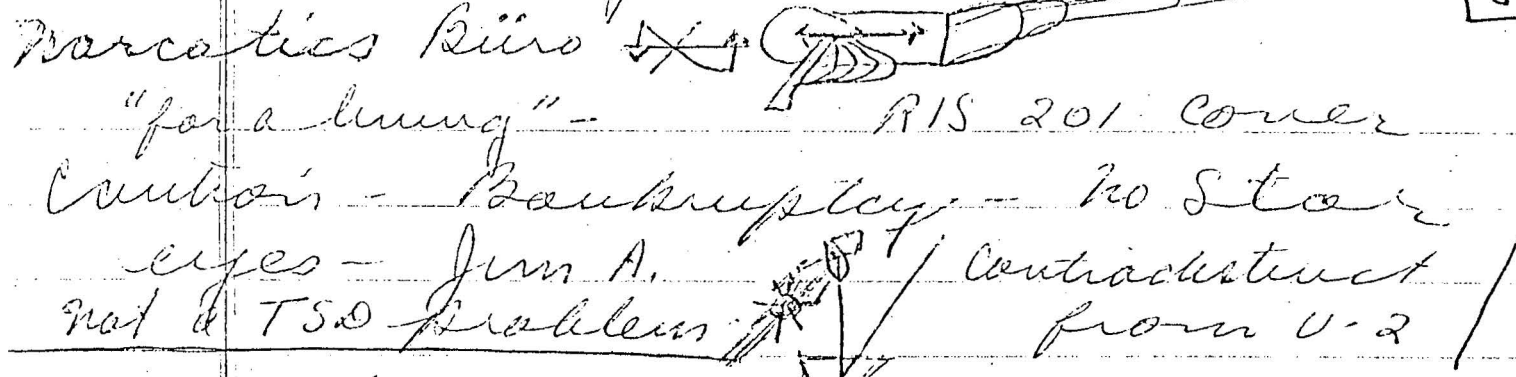 Narcotics Büro
"for a living" - RIS 201 Cover
Caution - Bankruptcy - no Star
eyes - Jim A. / Contradistinct /
not a TSD problem from U-2